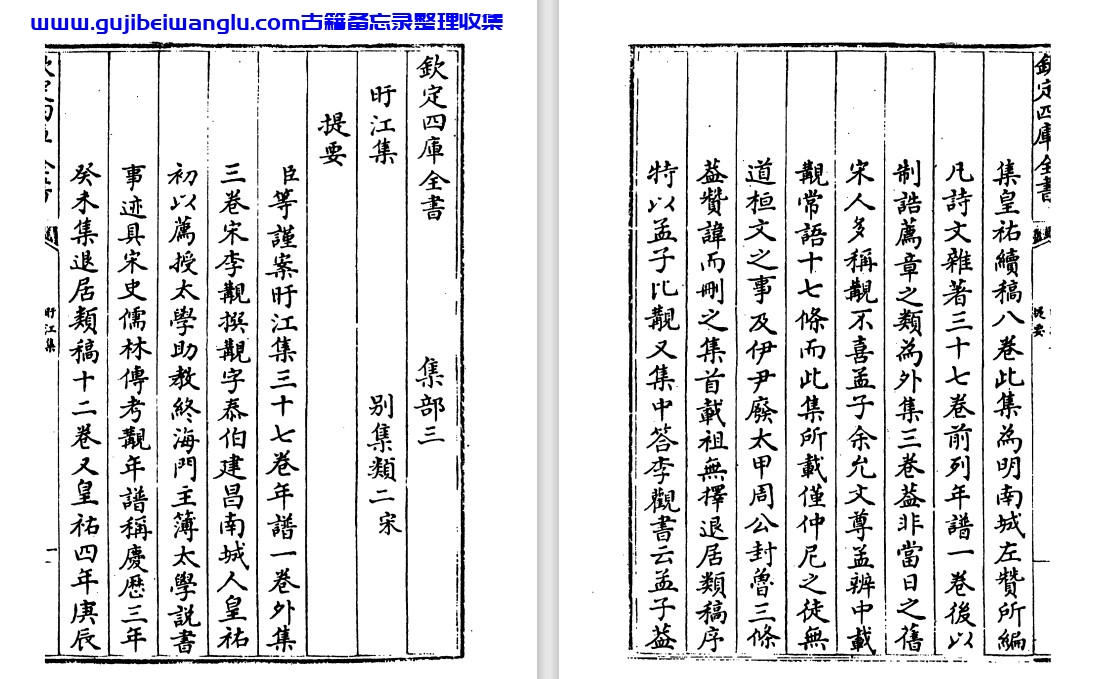 www.gujibeiwanglu.com古籍备忘录整理收集
欽定四庫全書 集部三
旴江集 别集類二 宋
提要
臣等謹案旴江集三十七卷年譜一卷外集
三卷宋李覯撰覯字㤗伯建昌南城人皇祐
初以薦授太學助教終海門主簿太學説書
事迹具宋史儒林傳考覯年譜稱慶厯三年
癸未集退居類稿十二卷又皇祐四年庚辰
旴江集
一
欽定四庫全書
提要
集皇祐續稿八卷此集為明南城左贊所編
凡詩文雜著三十七卷前列年譜一卷後以
制誥薦章之類為外集三卷葢非當日之舊
宋人多稱覯不喜孟子余允文尊孟辨中載
覯常語十七條而此集所載僅仲尼之徒無
道桓文之事及伊尹廢太甲周公封魯三條
葢贊諱而刪之集首載祖無擇退居類稿序
特以孟子比覯又集中答李觀書云孟子葢